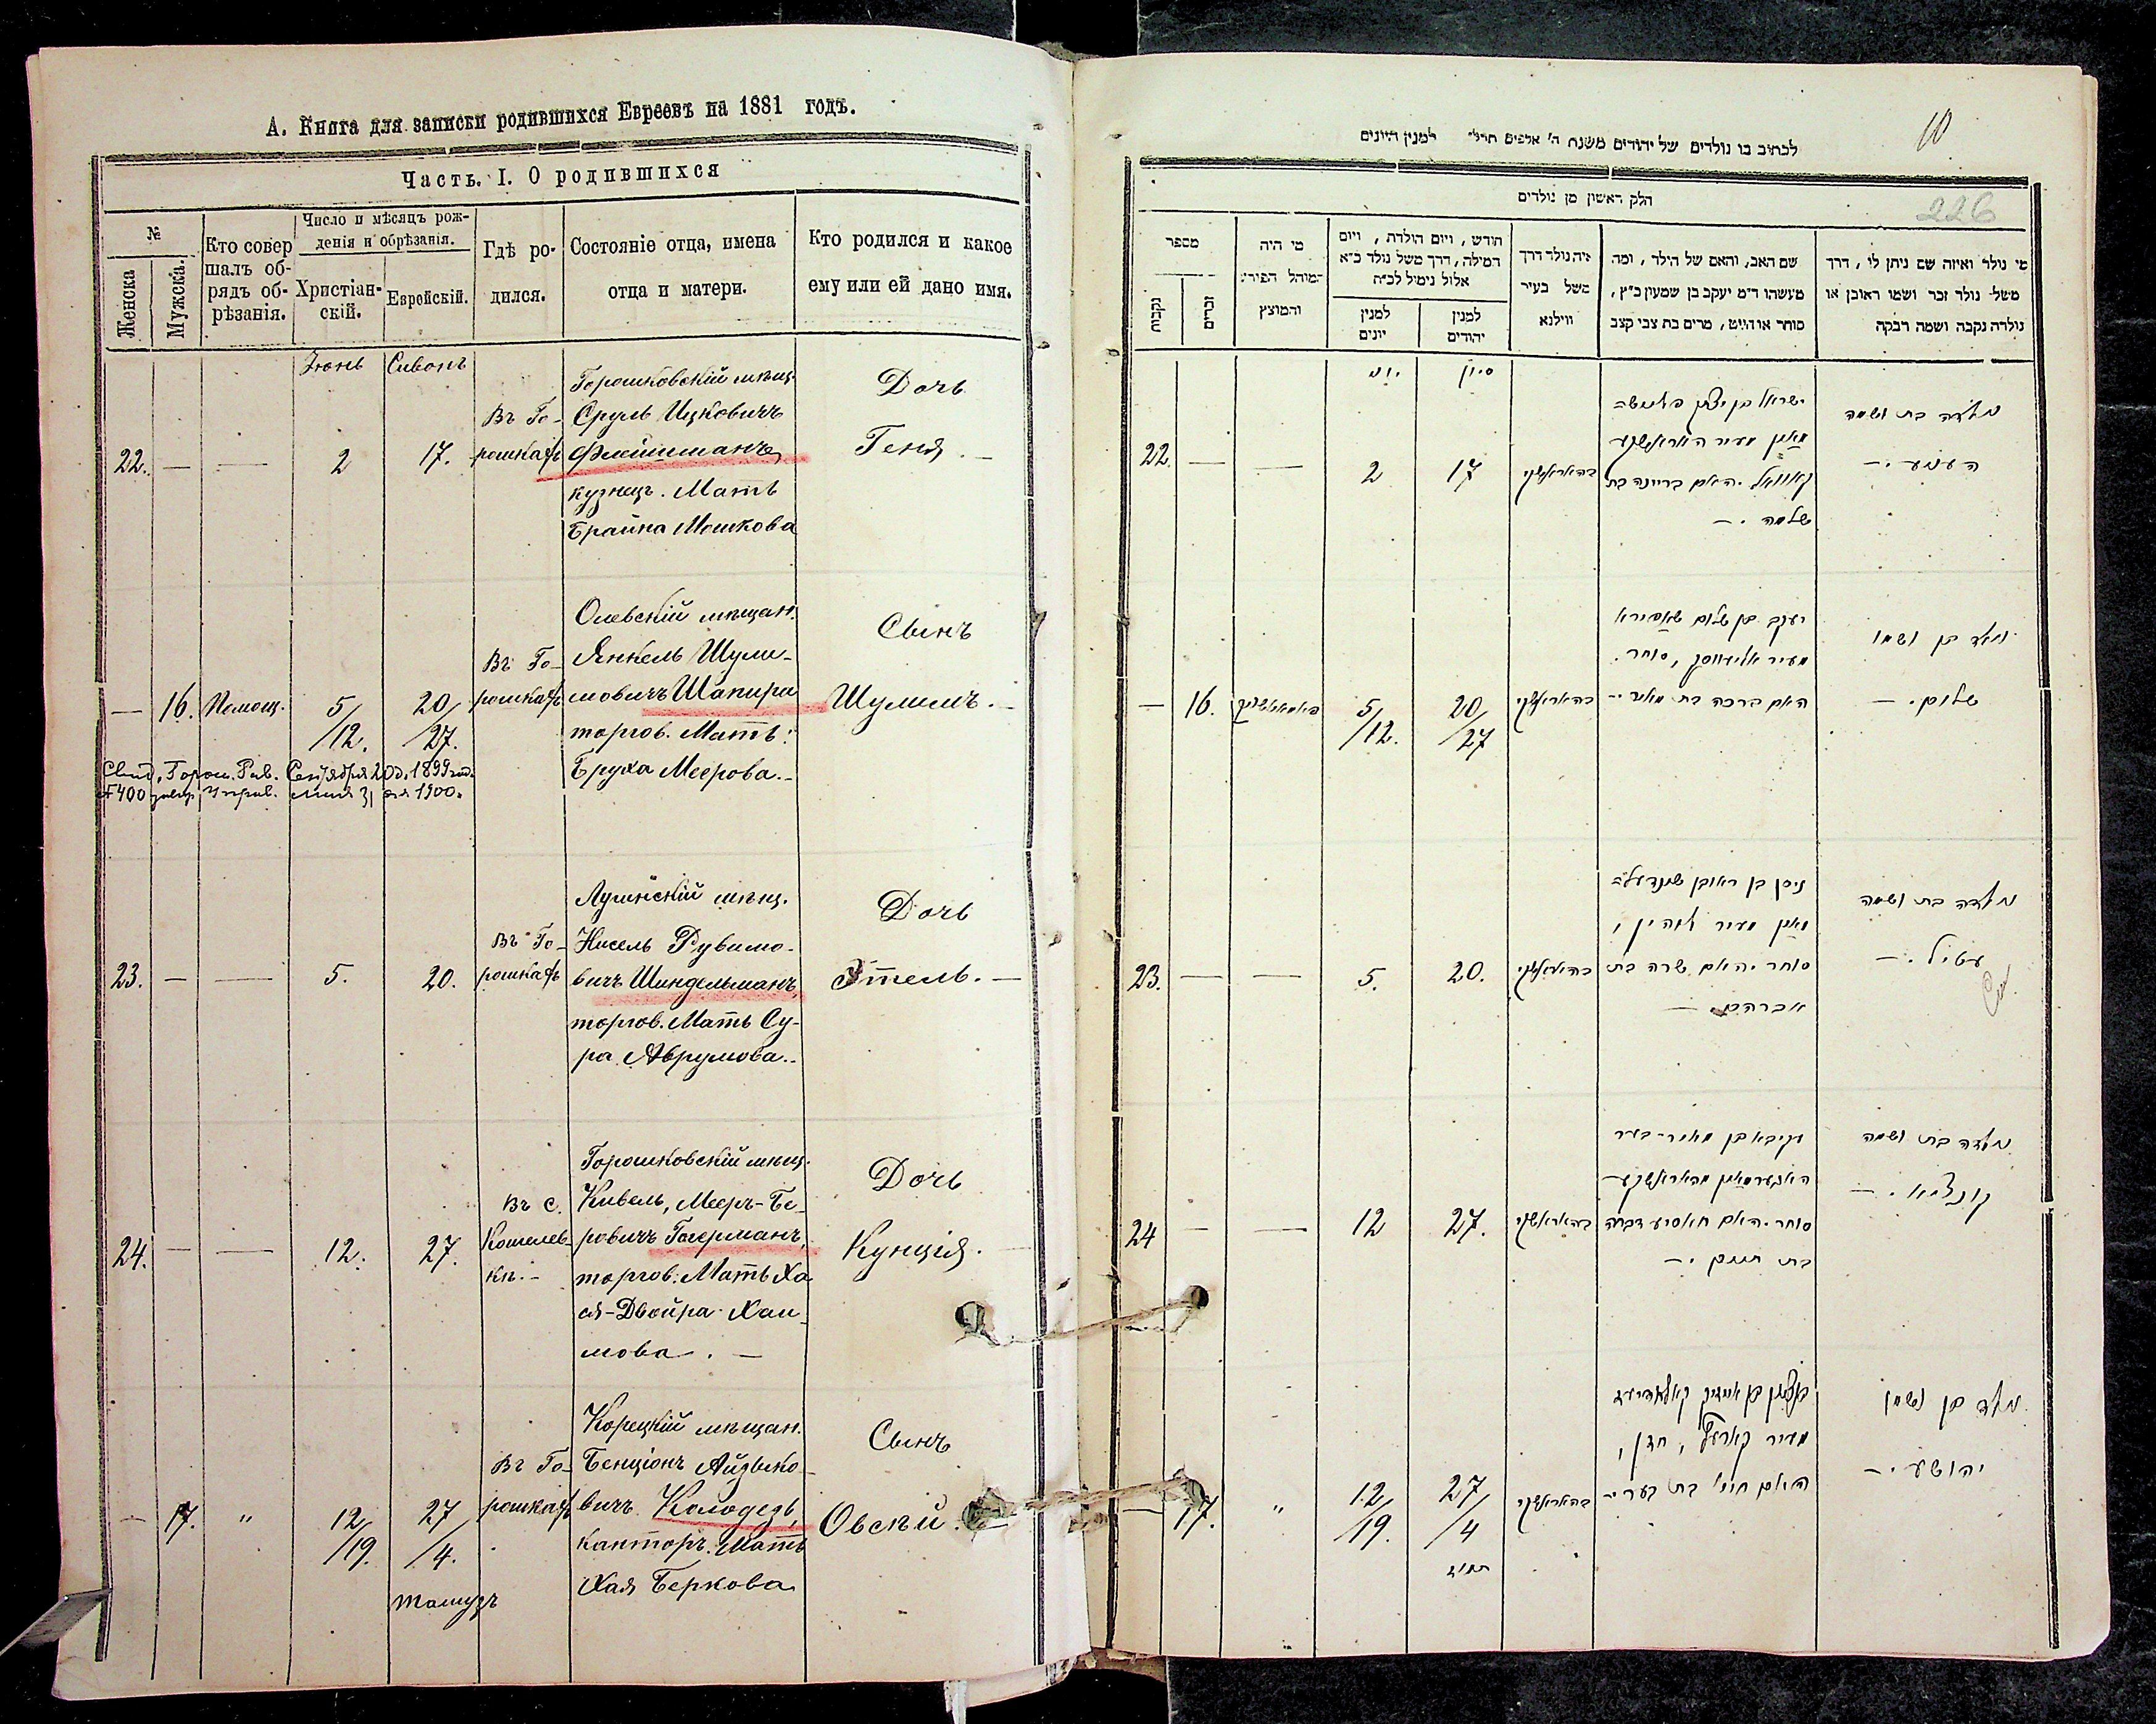 А. Книга для записки родившихся Евреевъ на 1881 годъ.
Часть. I. О родившихся
№
Женска
Мужска.
Кто совер
шалъ об-
рядъ об-
рѣзанія.
Число и мѣсяцъ рож-
денія и обрѣзанія.
Христіан-
скій.
Еврейскій.
Гдѣ ро-
дился.
Состояніе отца, имена
отца и матери.
Кто родился и какое
ему или ей дано имя.
Іюнь
Сивонъ
22. — — 2 17.
Въ Го-
рошкахъ
Горошковскій мѣщ.
Сруль Ицковичъ
Флейшманъ,
кузнецъ. Мать
Брайна Мошкова
Дочь
Геня. —
— 16. Помощ. 5/12. 20/27.
Въ Го-
рошкахъ
Олевскій мѣщан.
Янкель Шули-
мовичъ Шапира
торгов. Мать:
Бруха Меерова. -
Сынъ
Шулимъ. -
Свид. Горош. Рав. Сентября 20 д. 1899 год.
23. — — 5. 20.
Въ Го-
рошкахъ
мѣщ.
Нисель Рувимо-
вичъ Шиндельманъ,
торгов. Мать Су-
ра Аврумова. -
Дочь
Этель. —
24. — — 12. 27.
Въ с.
Кошелев-
кѣ. -
Горошковскій мѣщ.
Кивель, Мееръ-Бе-
ровичъ Гохерманъ,
торгов: Мать Ха-
ся-Двойра Хаи-
мова. —
Дочь
Кунція. —
— 17. " 12/19. 27/4.
тамузъ
Въ Го-
рошкахъ
Корецкій мѣщан.
Бенціонъ Айзыко-
вичъ Колодезь,
канторъ. Мать
Хая Беркова
Сынъ
Овсѣй. —
10
226
לכתוב בו נולדים של יהודים משנת ה' אלפים תרל" למנין היונים
חלק ראשון מן נולדים
מספר
נקבות
זכרים
מי היה
המוהל הפורע
והמוצץ
חודש, ויום הולדת, ויום
המילה, דרך משל נולד כ"א
אלול נימול לכ"ח
למנין
יונים
למנין
יהודים
איה נולד דרך
משל בעיר
ווילנא
שם האב, והאם של הילד, ומה
מעשהו ד"מ יעקב בן שמעון כ"ץ,
סוחר או חייט, מרים בת צבי קצב
מי נולד ואיזה שם ניתן לו, דרך
משל נולד זכר ושמו ראובן או
נולדה נקבה ושמה רבקה
יוני
סיון
22. — — 2 17
האם בריינה בת
שלמה. —
נולדה בת ושמה
הענע. —
— 16. 5/12. 20/27
יעקב בן שלום שאפירא
סוחר.
האם ברכה בת מאיר. -
נולד בן ושמו
שלום. —
23. — — 5. 20.
ניסן בן ראובן שינדעל=
מאן מעיר
סוחר. האם שרה בת
אברהם. —
נולדה בת ושמה
עטיל. —
24 — — 12 27.
עקיבא בן מאיר-בער
סוחר. האם חאסיע דבורה
בת חיים. —
נולדה בת ושמה
קונציא. —
— 17. " 12/19. 27/4
תמוז
מעיר קארעץ, חזן,
האם חיי' בת בער. -
נולד בן ושמו
יהושע. —